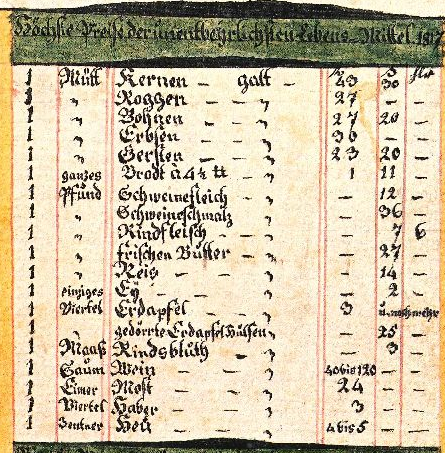 Höchste Preise der unentbehrlichsten Lebens-Mittel 1817
1 Mütt Kernen – galt – 43 30
1 " Roggen – " 27 – –
1 " Bohnen – " 27 20 –
1 " Erbsen – " 36 – –
1 " Gersten – " 23 20 –
1 ganzes Brodt à 4½ ℔ " 1 11 –
1 Pfund Schweinefleich – " – 12 –
1 " Schweineschmalz – 36 –
1 " Rindfleisch – " – 7 6
1 " frischen Butter – " – 27 –
1 " Reis – – " – 14 –
1 einziges Ey – – " – 2 –
1 Viertel Erdapfel – " 3 u. noch mehr
1 " gedörrte Erdapfel Hülsen " – 25 –
1 Maaß Rindsbluth – " – 3 –
1 Saum Wein – – " 40 bis 120 – –
1 Eimer Most – – " 24 – –
1 Viertel Haber – – " 3 – –
1 Zentner Heü – – " 4 bis 5 – –